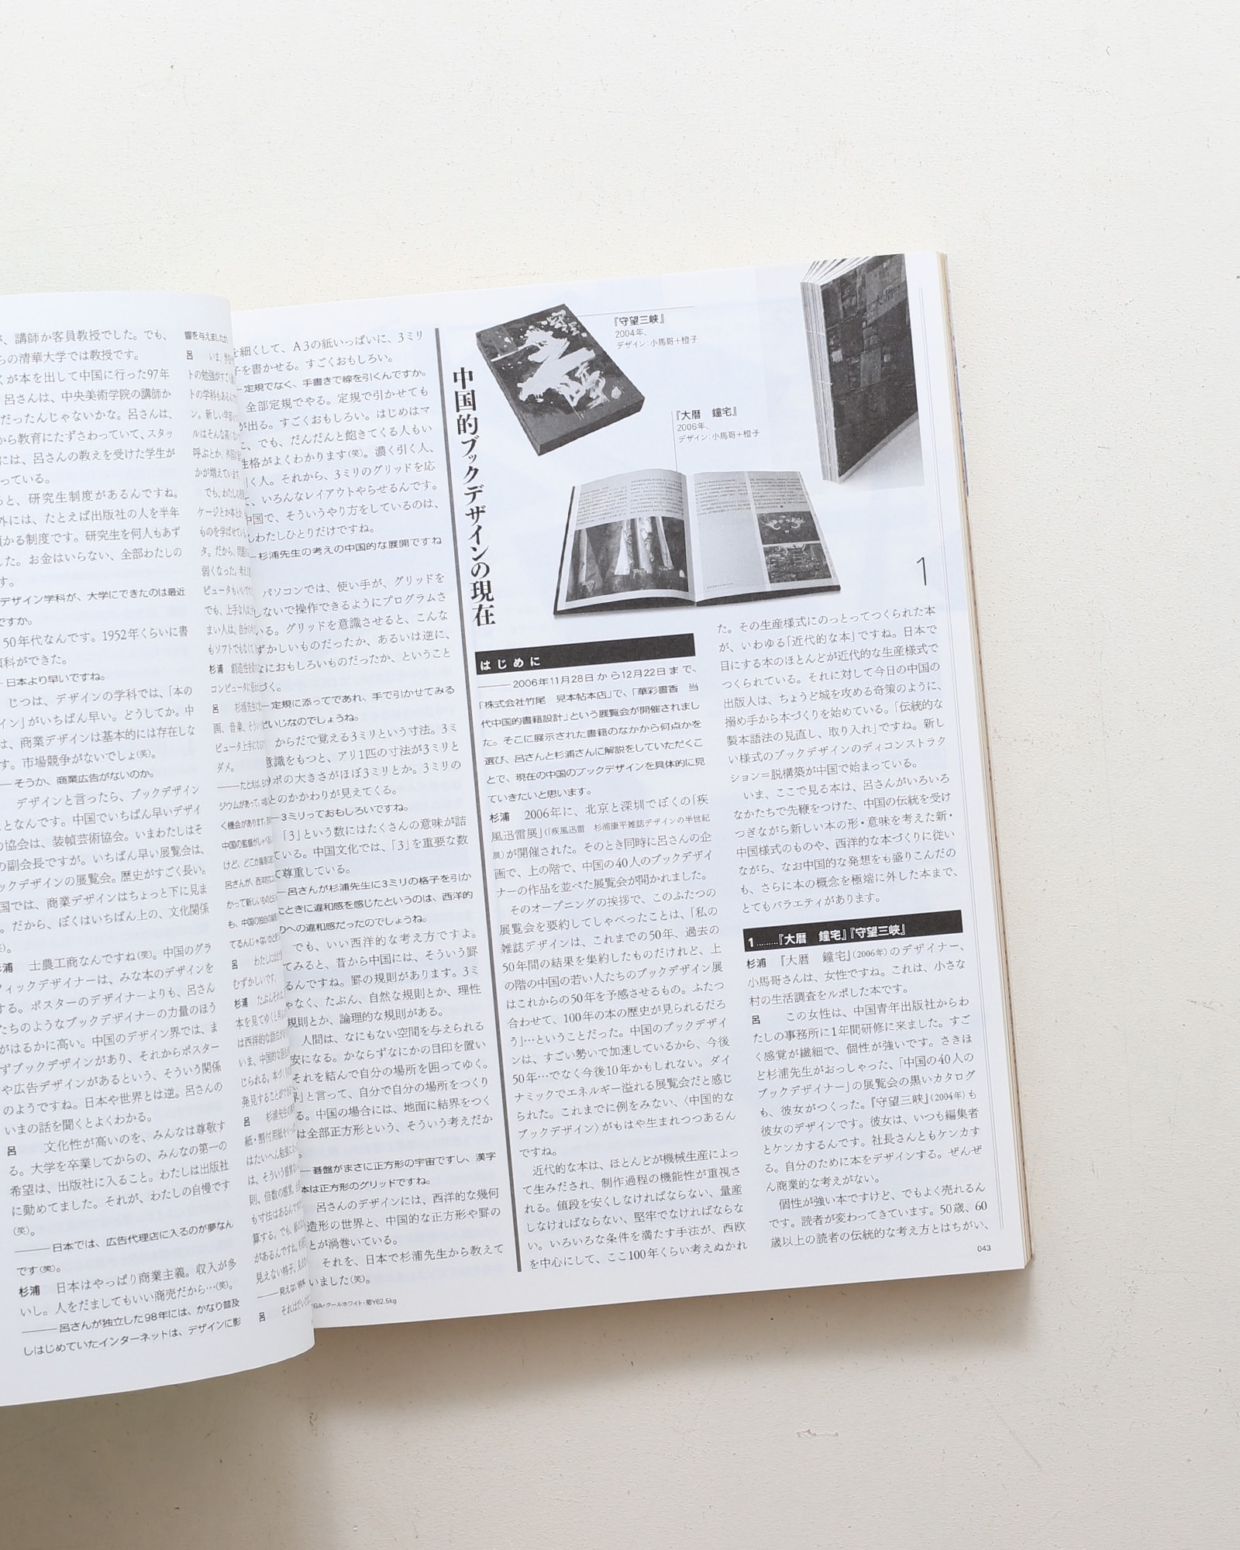 、講師か客員教授でした。でも、
らの清華大学では教授です。
くが本を出して中国に行った97年
呂さんは、中央美術学院の講師か
だったんじゃないかな。呂さんは、
から教育にたずさわっていて、スタッ
には、呂さんの教えを受けた学生が
っている。
っと、研究生制度があるんですね。
外には、たとえば出版社の人を半年
かる制度です。研究生を何人もあず
た。お金はいらない、全部わたしの
す。
デザイン学科が、大学にできたのは最近
ですか。
50年代なんです。1952年くらいに書
科ができた。
日本より早いですね。
じつは、デザインの学科では、「本の
イン」がいちばん早い。どうしてか。中
は、商業デザインは基本的には存在しな
す。市場競争がないでしょ(笑)。
――そうか、商業広告がないのか。
デザインと言ったら、ブックデザイン
となんです。中国でいちばん早いデザイ
の協会は、装幀芸術協会。いまわたしはそ
の副会長ですが。いちばん早い展覧会は、
ックデザインの展覧会。歴史がすごく長い。
国では、商業デザインはちょっと下に見ま
。だから、ぼくはいちばん上の、文化関係
士農工商なんですね(笑)。中国のグラ
フィックデザイナーは、みな本のデザインを
する。ポスターのデザイナーよりも、呂さん
たちのようなブックデザイナーの力量のほう
がはるかに高い。中国のデザイン界では、ま
ずブックデザインがあり、それからポスター
や広告デザインがあるという、そういう関係
のようですね。日本や世界とは逆。呂さんの
いまの話を聞くとよくわかる。
呂　文化性が高いのを、みんなは尊敬す
る。大学を卒業してからの、みんなの第一の
希望は、出版社に入ること。わたしは出版社
に勤めてました。それが、わたしの自慢です
(笑)。
――日本では、広告代理店に入るのが夢なん
です(笑)。
杉浦　日本はやっぱり商業主義。収入が多
いし。人をだましてもいい商売だから…(笑)。
――呂さんが独立した98年には、かなり普及
しはじめていたインターネットは、デザインに影
細くして、A3の紙いっぱいに、3ミリ
子を書かせる。すごくおもしろい。
定規でなく、手書きで線を引くんですか。
全部定規でやる。定規で引かせても
が出る。すごくおもしろい。はじめはマ
、でも、だんだんと飽きてくる人もい
性格がよくわかります(笑)。濃く引く人、
く人。それから、3ミリのグリッドを応
、いろんなレイアウトやらせるんです。
中国で、そういうやり方をしているのは、
わたしひとりだけですね。
―杉浦先生の考えの中国的な展開ですね
パソコンでは、使い手が、グリッドを
しないで操作できるようにプログラムさ
いる。グリッドを意識させると、こんな
ずかしいものだったか、あるいは逆に、
なにおもしろいものだったか、ということ
づく。
―定規に添ってであれ、手で引かせてみる
いじなのでしょうね。
からだで覚える3ミリという寸法。3ミ
意識をもつと、アリ1匹の寸法が3ミリと
ポの大きさがほぼ3ミリとか。3ミリの
とのかかわりが見えてくる。
―3ミリっておもしろいですね。
「3」という数にはたくさんの意味が詰
ている。中国文化では、「3」を重要な数
て尊重している。
―呂さんが杉浦先生に3ミリの格子を引か
たときに違和感を感じたというのは、西洋的
への違和感だったのでしょうね。
でも、いい西洋的な考え方ですよ。
てみると、昔から中国には、そういう罫
るんですね。罫の規則があります。3ミ
やなく、たぶん、自然な規則とか、理性
規則とか、論理的な規則がある。
人間は、なにもない空間を与えられる
安になる。かならずなにかの目印を置い
それを結んで自分の場所を囲ってゆく。
」と言って、自分で自分の場所をつくり
る。中国の場合には、地面に結界をつく
は全部正方形という、そういう考えだか
―碁盤がまさに正方形の宇宙ですし、漢字
本は正方形のグリッドですね。
呂さんのデザインには、西洋的な幾何
造形の世界と、中国的な正方形や罫の
とが渦巻いている。
それを、日本で杉浦先生から教えて
いました(笑)。
中国的ブックデザインの現在
『守望三峡』
2004年、
デザイン:小馬哥+橙子
『大暦　鐘宅』
2006年、
デザイン:小馬哥+橙子
1
はじめに
――2006年11月28日から12月22日まで、
「株式会社竹尾　見本帖本店」で、「華彩書香　当
代中国的書籍設計」という展覧会が開催されまし
た。そこに展示された書籍のなかから何点かを
選び、呂さんと杉浦さんに解説をしていただくこ
とで、現在の中国のブックデザインを具体的に見
ていきたいと思います。
杉浦　2006年に、北京と深圳でぼくの「疾
風迅雷展」(「疾風迅雷　杉浦康平雑誌デザインの半世紀
展」)が開催された。そのとき同時に呂さんの企
画で、上の階で、中国の40人のブックデザイ
ナーの作品を並べた展覧会が開かれました。
そのオープニングの挨拶で、このふたつの
展覧会を要約してしゃべったことは、「私の
雑誌デザインは、これまでの50年、過去の
50年間の結果を集約したものだけれど、上
の階の中国の若い人たちのブックデザイン展
はこれからの50年を予感させるもの。ふたつ
合わせて、100年の本の歴史が見られるだろ
う」…ということだった。中国のブックデザイ
ンは、すごい勢いで加速しているから、今後
50年…でなく今後10年かもしれない。ダイ
ナミックでエネルギー溢れる展覧会だと感じ
られた。これまでに例をみない、〈中国的な
ブックデザイン〉がもはや生まれつつあるん
ですね。
近代的な本は、ほとんどが機械生産によっ
て生みだされ、制作過程の機能性が重視さ
れる。値段を安くしなければならない、量産
しなければならない、堅牢でなければならな
い。いろいろな条件を満たす手法が、西欧
を中心にして、ここ100年くらい考えぬかれ
た。その生産様式にのっとってつくられた本
が、いわゆる「近代的な本」ですね。日本で
目にする本のほとんどが近代的な生産様式で
つくられている。それに対して今日の中国の
出版人は、ちょうど城を攻める奇策のように、
搦め手から本づくりを始めている。「伝統的な
製本語法の見直し、取り入れ」ですね。新し
い様式のブックデザインのディコンストラク
ション=脱構築が中国で始まっている。
いま、ここで見る本は、呂さんがいろいろ
なかたちで先鞭をつけた、中国の伝統を受け
つぎながら新しい本の形・意味を考えた新・
中国様式のものや、西洋的な本づくりに従い
ながら、なお中国的な発想をも盛りこんだの
も、さらに本の概念を極端に外した本まで、
とてもバラエティがあります。
1………『大暦　鐘宅』『守望三峡』
杉浦　『大暦　鐘宅』(2006年)のデザイナー、
小馬哥さんは、女性ですね。これは、小さな
村の生活調査をルポした本です。
呂　この女性は、中国青年出版社からわ
たしの事務所に1年間研修に来ました。すご
く感覚が繊細で、個性が強いです。さきほ
ど杉浦先生がおっしゃった、「中国の40人の
ブックデザイナー」の展覧会の黒いカタログ
も、彼女がつくった。『守望三峡』(2004年)も
彼女のデザインです。彼女は、いつも編集者
とケンカするんです。社長さんともケンカす
る。自分のために本をデザインする。ぜんぜ
ん商業的な考えがない。
個性が強い本ですけど、でもよく売れるん
です。読者が変わってきています。50歳、60
歳以上の読者の伝統的な考え方とはちがい、
043